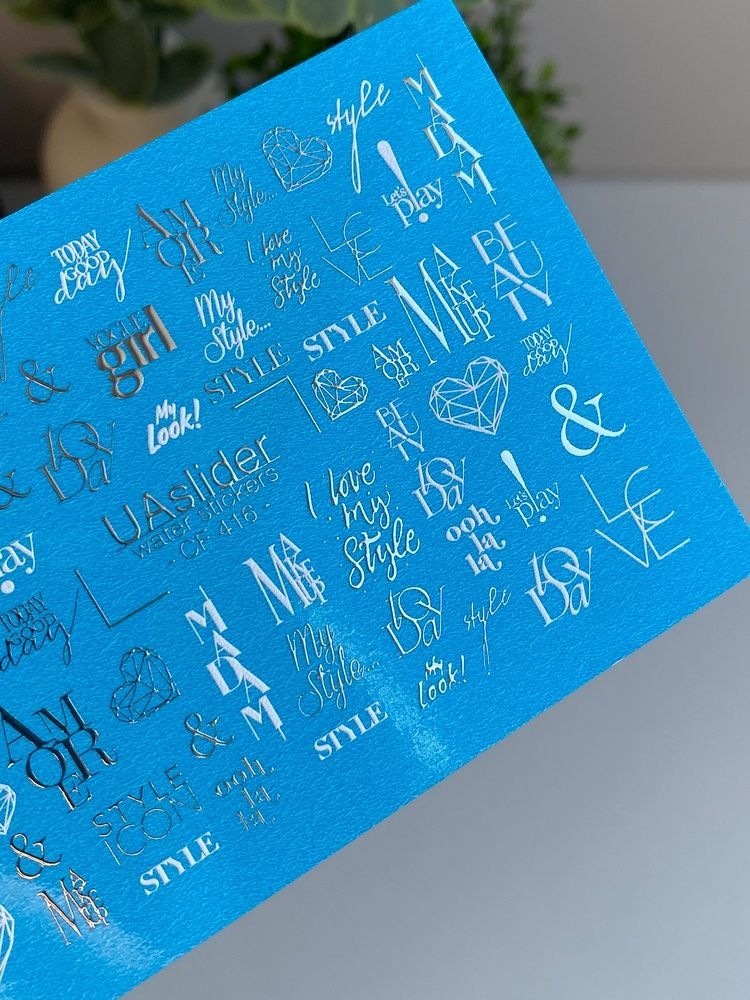 style
MADAM
My
Style...
Let's
play
AMORE
TODAY
GOOD
day
I love
my
Style
LOVE
BEAUTY
MAKEUP
VOGUE
girl
My
Style...
STYLE
STYLE
AMORE
TODAY
GOOD
day
&
My
Look!
BEAUTY
&
&
toDay
UAslider
water stickers
- CF 416 -
I love
my
Style
toDay
Let's
play
ooh
la
la
LOVE
play
TODAY
GOOD
day
MADAM
MAKEUP
toDay
style
toDay
My
Style...
My
Look!
AMORE
&
STYLE
STYLE
ICON
ooh
la
la
&
STYLE
MAKEUP